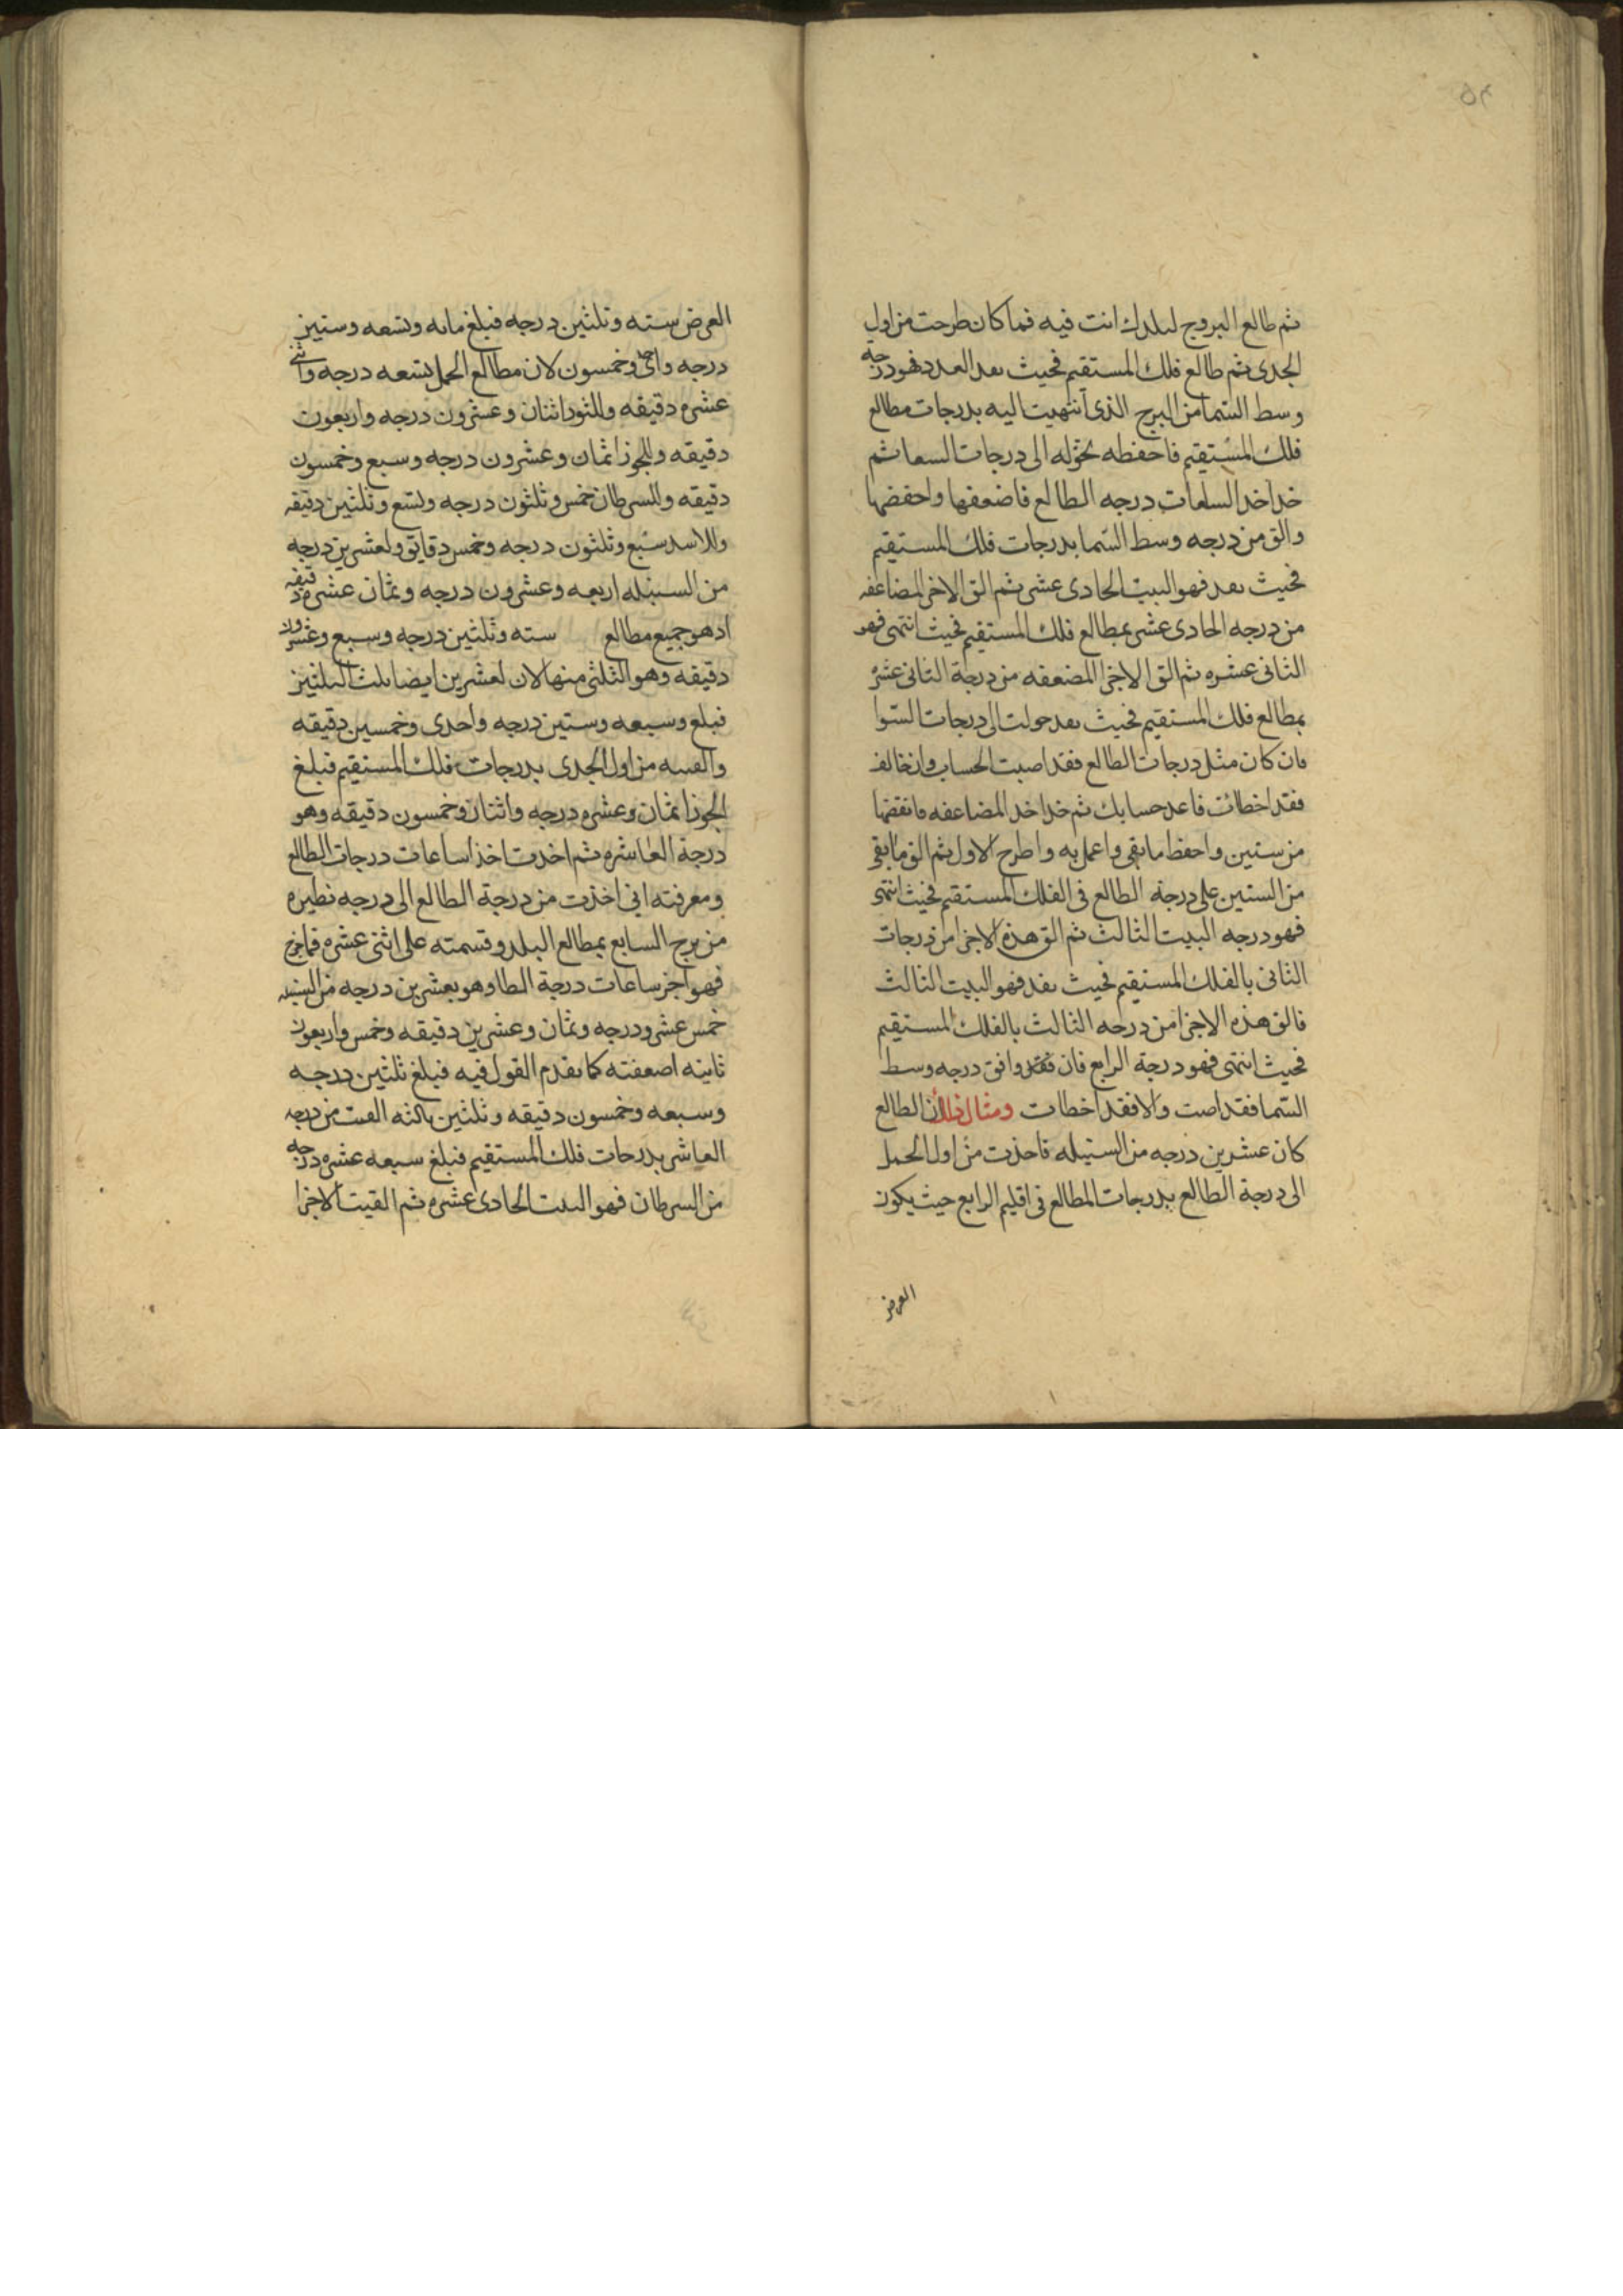 ثم طالع البروج لبلدك انت فيه فما كان طرحت من اول
الجدى ثم طالع فلك المستقيم فحيث نفد العدد فهو درجه
وسط السما من البرج الذى انتهيت اليه بدرجات مطالع
فلك المستقيم فاحفظه تحوله الى درجات السما ثم
خذ اخذ الساعات درجه الطالع فاضعفها واحفضها
والق من درجه وسط السما بدرجات فلك المستقيم
فحيث نفد فهو البيت الحادى عشر ثم الق الاخر المضاعفه
من درجه الحادى عشر بمطالع فلك المستقيم فحيث انتهى فهو
الثانى عشره ثم الق الاخرا المضعفه من درجة الثانى عشر
بمطالع فلك المستقيم فحيث نفد حولت الى درجات السوا
فان كان مثل درجات الطالع فقد اصبت الحساب وان خالف
فقد اخطائت فاعد حسابك ثم خذ اخد المضاعفه فانقضها
من ستين واحفظ ما بقى واعمل به واطرح الاول ثم الق ما بقى
من الستين على درجة الطالع فى الفلك المستقيم فحيث انتهى
فهو درجه البيت الثالث ثم الق هذه الاخرا من درجات
الثانى بالفلك المستقيم فحيث نفد فهو البيت الثالث
فالق هذه الاجزا من درجه الثالث بالفلك المستقيم
فحيث انتهى فهو درجة الرابع فان فقد وافق درجه وسط
السما فقد اصبت والا فقد اخطات ومثال ذلك ان الطالع
كان عشرين درجه من السنبله فاخذت من اول الحمل
الى درجة الطالع بدرجات المطالع فى اقليم الرابع حيث يكون
العرض
العرض سته وثلثين درجه فبلغ مايه وتسعه وستين
درجه واحد وخمسون لان مطالع الحمل تسعه درجه واثنى
عشره دقيقه وللثور اثنان وعشرون درجه واربعون
دقيقه وللجوزا ثمان وعشرون درجه وسبع وخمسون
دقيقه وللسرطان خمس وثلثون درجه وتسع وثلثين دقيقه
وللاسد سبع وثلثون درجه وخمس دقايق ولعشرين درجه
من السنبله اربعه وعشرون درجه وثمان عشره دقيقه
اذ هو جميع مطالع سته وثلثين درجه وسبع وعشرون
دقيقه وهو الثلثى منها لان لعشرين ايضا ثلث الثلثين
فبلغ وسبعه وستين درجه واحدى وخمسين دقيقه
والقيه من اول الجدى بدرجات فلك المستقيم فبلغ
الجوزا ثمان وعشره درجه واثنان وخمسون دقيقه وهو
درجة العاشره ثم اخذت اخذ ساعات درجات الطالع
ومعرفته انى اخذت من درجة الطالع الى درجه نظيره
من برج السابع بمطالع البلد وقسمته على اثنى عشره فما خرج
فهو اجز ساعات درجة الطا وهو بعشرين درجه من السنبله
خمس عشر ودرجه وثمان وعشرين دقيقه وخمس واربعون
ثانيه اضعفته كما تقدم القول فيه فبلغ ثلثين درجه
وسبعه وخمسون دقيقه وثلثين ثالثه القيت من درجه
العاشر بدرجات فلك المستقيم فبلغ سبعه عشره درجه
من السرطان فهو البيت الحادى عشره ثم القيت الاخرا